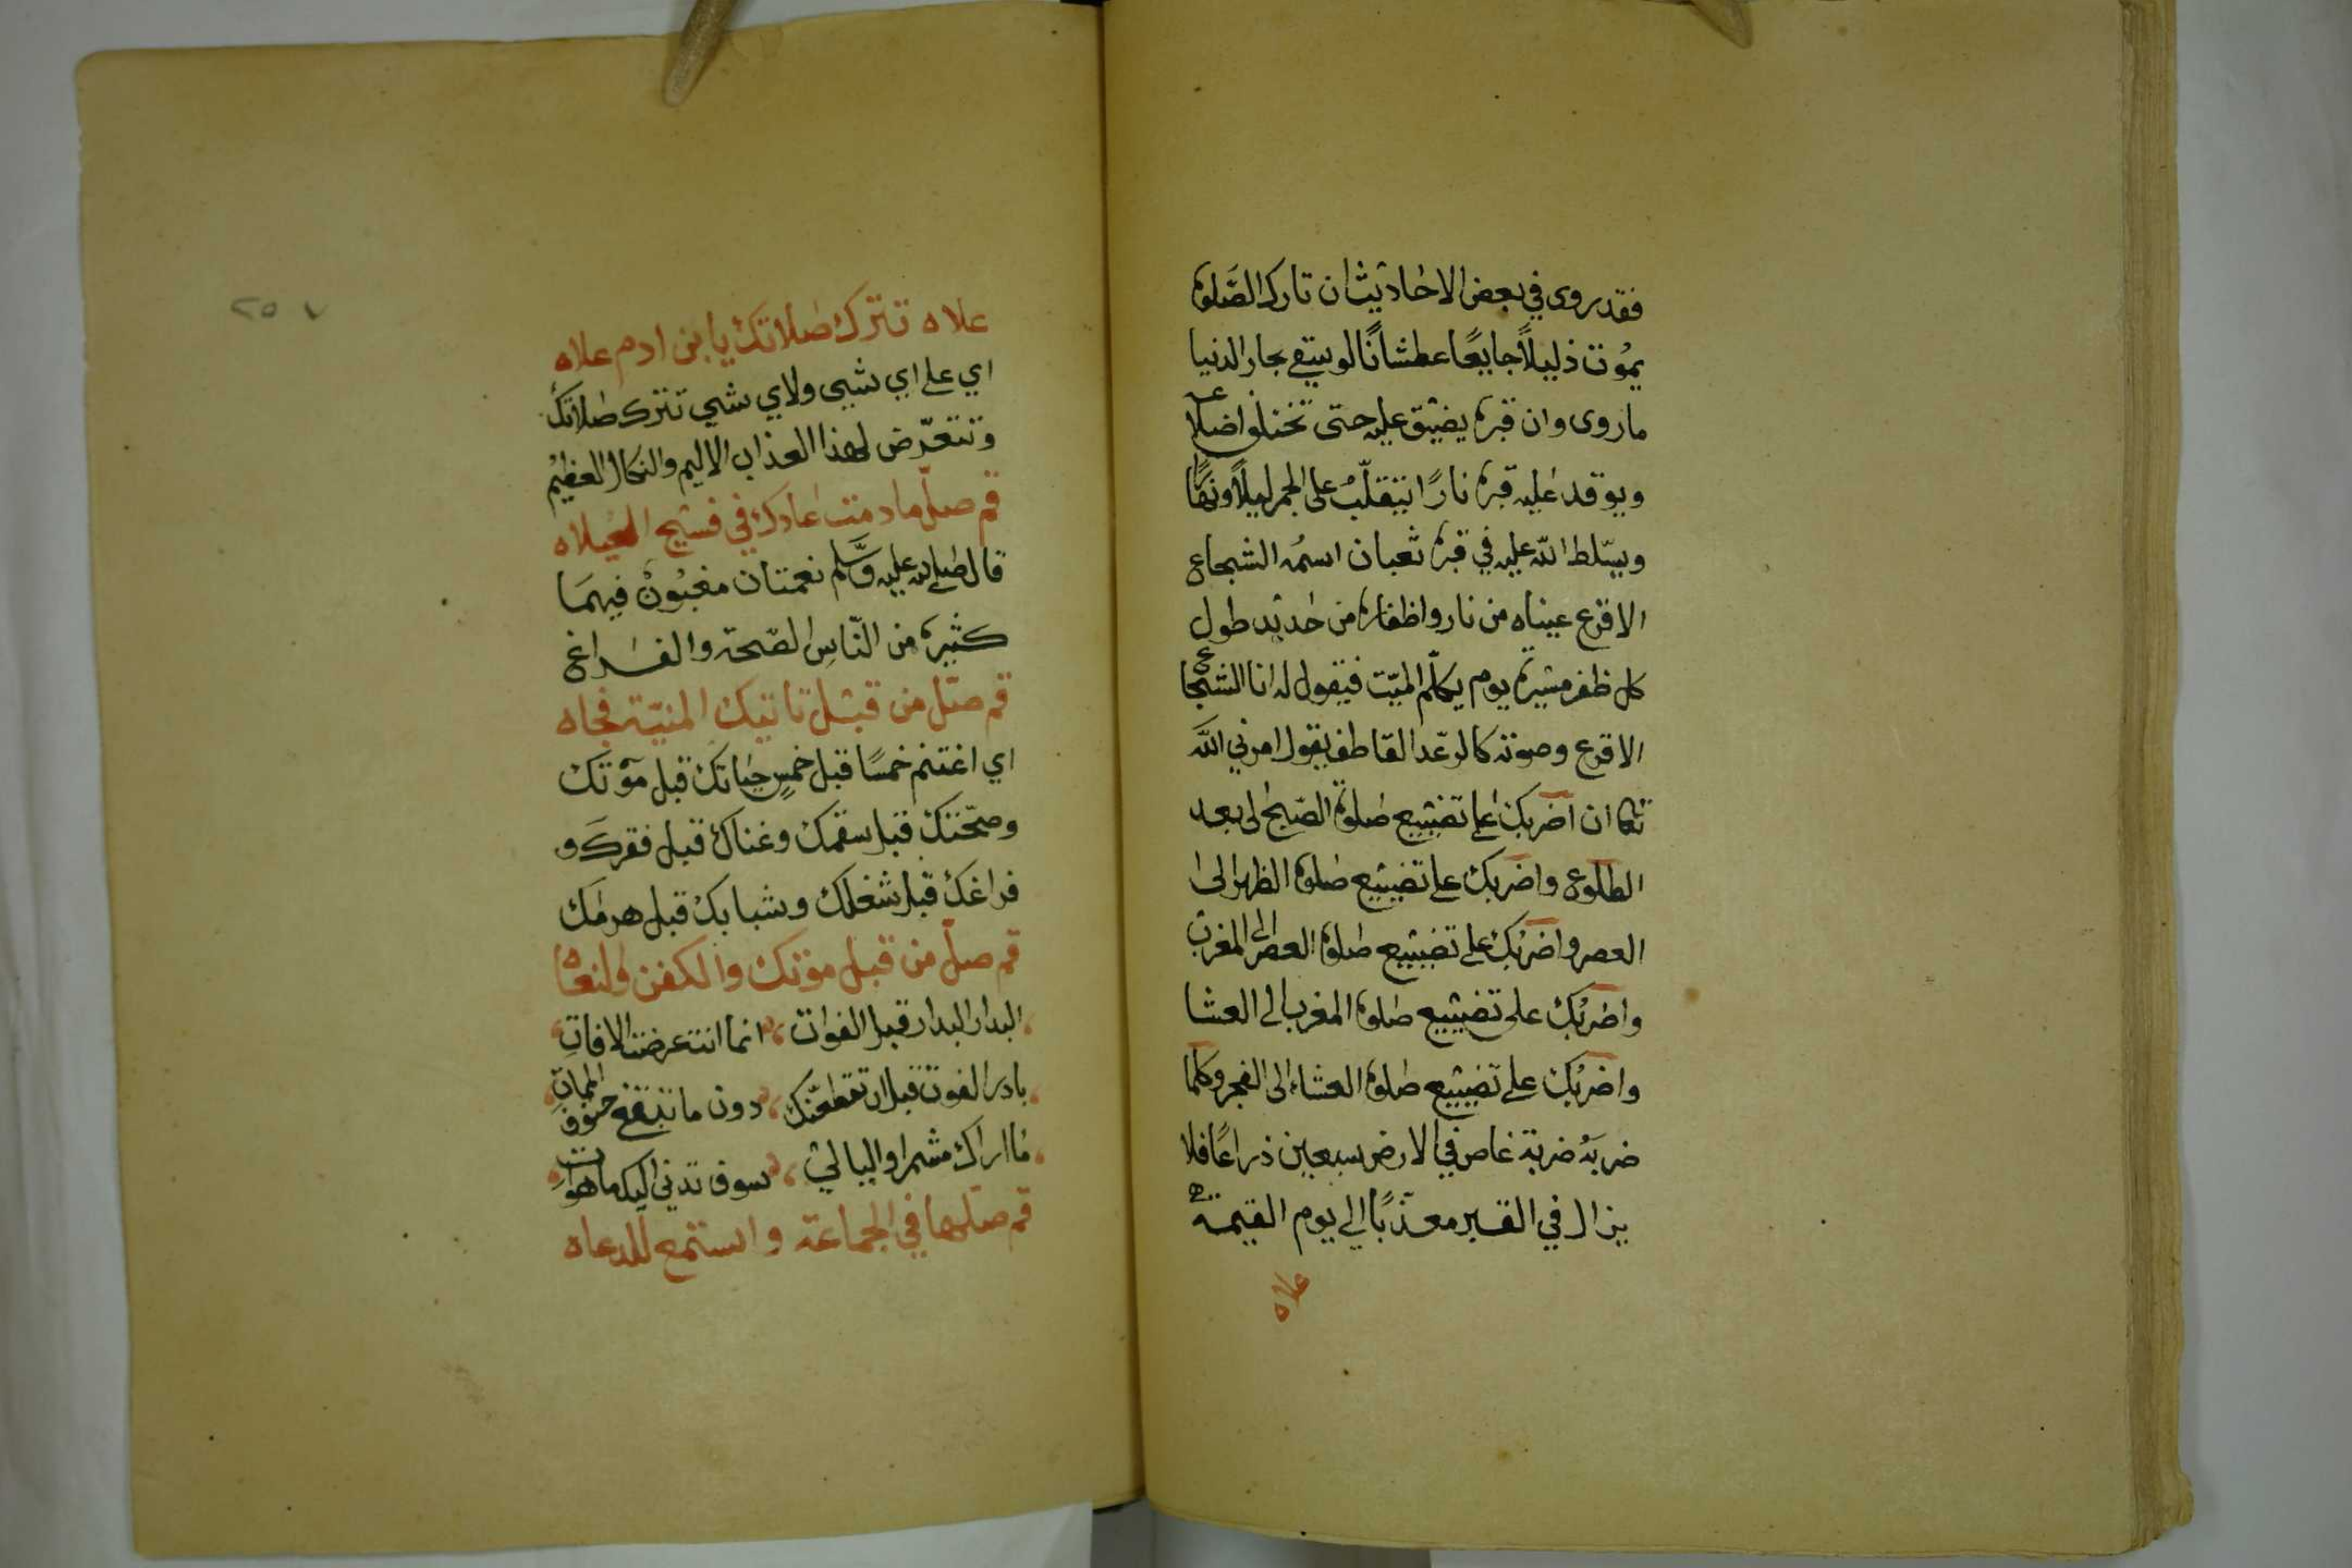 فقد روى في بعض الاحاديث ان تارك الصلوة
يموت ذليلاً جايعًا عطشانًا لو سقي بحار الدنيا
ما روى وان قبره يضيق عليه حتى تختلف اضلاعه
ويوقد عليه قبره نارًا يتقلّب على الجمر ليلاً ونهارًا
ويسلط الله عليه في قبره ثعبان اسمه الشجاع
الاقرع عيناه من نار واظفاره من حديد طول
كل ظفر مسيرة يوم يكلم الميّت فيقول له انا الشجاع
الاقرع وصوته كالرعد القاصف يقول امرني الله
تعا ان اضربك على تضييع صلوة الصبح الى بعد
الطلوع واضربك على تضييع صلوة الظهر الى
العصر واضربك على تضييع صلوة العصر الى المغرب
واضربك على تضييع صلوة المغرب الى العشا
واضربك على تضييع صلوة العشاء الى الفجر وكلما
ضربه ضربة غاص في الارض سبعين ذراعًا فلا
يزال في القبر معذبًا الي يوم القيمة
علاه
٢٥٧
علاه تترك صلاتك يا ابن ادم علاه
اي على اي شيي ولاي شي تترك صلاتك
وتتعرّض لهذا العذاب الاليم والنكال العظيم
قم صلّ ما دمت عادك في فسيح المحيلاه
قال صلى الله عليه وسلم نعمتان مغبون فيهما
كثيره من الناس الصحة والفراغ
قم صلّ من قبل تاتيك المنيّة فجاه
اي اغتنم خمسًا قبل خمسٍ حياتك قبل موتك
وصحّتك قبل سقمك وغناك قبل فقرك و
فراغك قبل شغلك وشبابك قبل هرمك
قم صلّ من قبل موتك والكفن والنعاه
البدار البدار قبل الفوات انما انت عرضة الافات
بادر الفوت قبل ان تقطعنك دون ما تبتغي حتوف الممات
ما اراك مشمرا والليالي سوف تدني اليك ما هو ات
قم صلّها في الجماعة واستمع للدعاه